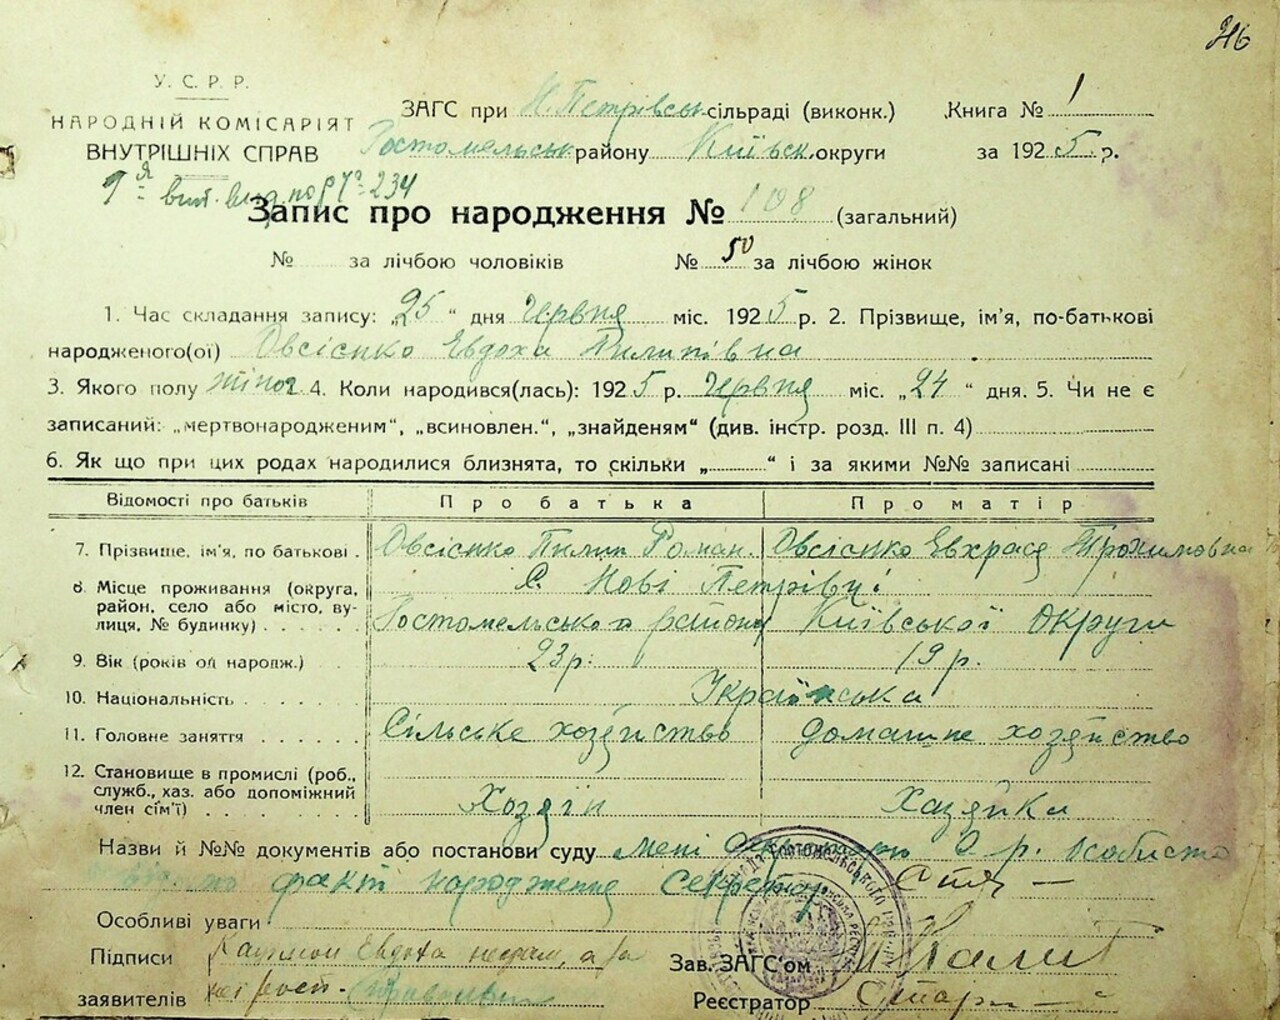 316
У. С. Р. Р.
НАРОДНІЙ КОМІСАРІЯТ
ВНУТРІШНІХ СПРАВ
ЗАГС при Н. Петрівськ. сільраді (виконк.) Книга № 1
Гостомельськ району Київськ. округи за 1925 р.
Запис про народження № 108 (загальний)
№ за лічбою чоловіків № 50 за лічбою жінок
1. Час складання запису: „25“ дня Червня міс. 1925 р. 2. Прізвище, ім'я, по-батькові
народженого(ої) Овсієнко Евдоха Пилипівна
3. Якого полу жіноч 4. Коли народився(лась): 1925 р. Червня міс. „24“ дня. 5. Чи не є
записаний: „мертвонародженим“, „всиновлен.“, „знайденям“ (див. інстр. розд. III п. 4)
6. Як що при цих родах народилися близнята, то скільки „ “ і за якими №№ записані
Відомості про батьків Про батька Про матір
7. Прізвище, ім'я, по батькові. Овсієнко Пилип Роман. Овсієнко Евхрася Трохимовна
8. Місце проживання (округа, С. Нові Петрівці
район, село або місто, ву-
лиця, № будинку) Гостомельського району Київської Округи
9. Вік (років од народж.) 23 р. 19 р.
10. Національність Українська
11. Головне заняття Сільське хозяйство домашне хозяйство
12. Становище в промислі (роб.,
служб., хаз. або допоміжний
член сім'ї) Хозяїн Хазяйка
Назви й №№ документів або постанови суду мені Особисто
факт народження Секретар
Особливі уваги
Підписи
Зав. ЗАГС'ом
заявителів
Реєстратор